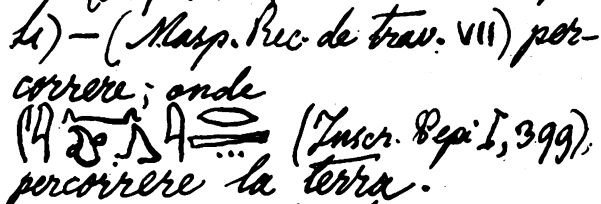 — (Masp. Rec. de trav. VII) per-
correre; onde
(Inscr. Pepi I, 399),
percorrere la terra.